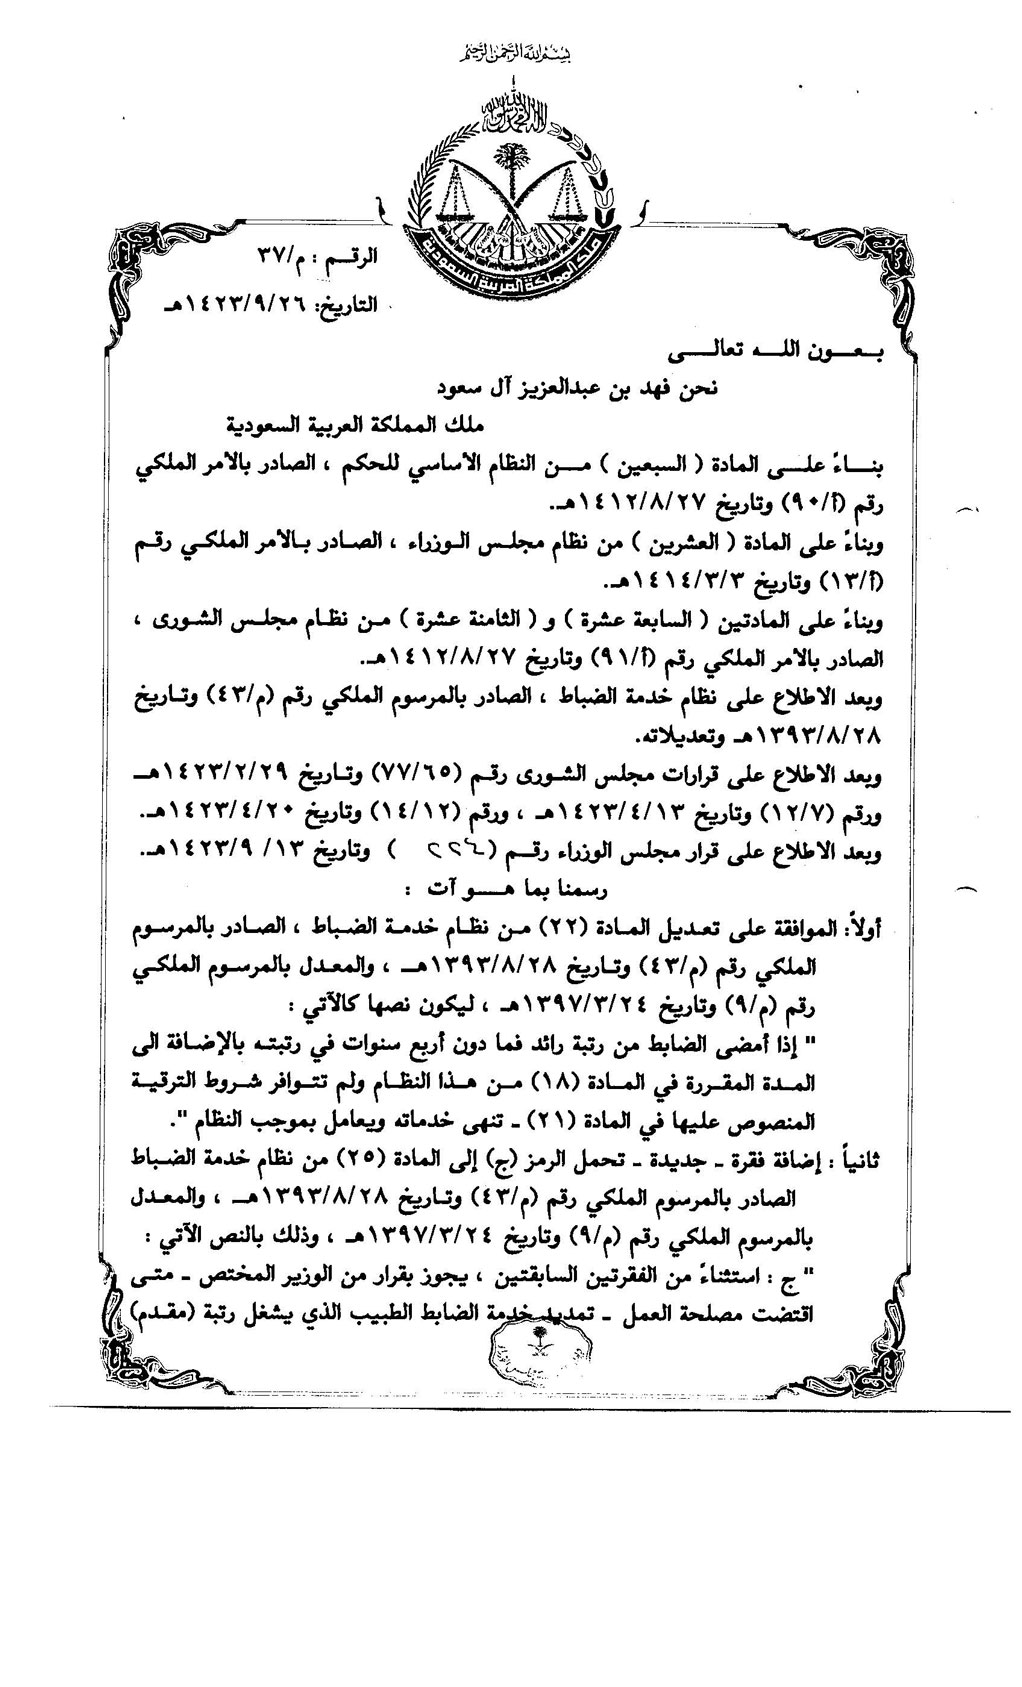 بسم الله الرحمن الرحيم
لا إله إلا الله محمد رسول الله
ملك المملكة العربية السعودية
الرقــم : م/٣٧
التاريخ: ١٤٢٣/٩/٢٦هـ
بـعـون اللـه تعالـى
نحن فهد بن عبدالعزيز آل سعود
ملك المملكة العربية السعودية
بنـاءً علـى المادة ( السبعين ) مـن النظام الأساسي للحكم ، الصادر بالأمر الملكي
رقم (أ/٩٠) وتاريخ ١٤١٢/٨/٢٧هـ.
وبناءً على المادة ( العشرين ) من نظام مجلس الوزراء ، الصادر بالأمر الملكي رقـم
(أ/١٣) وتاريخ ١٤١٤/٣/٣هـ.
وبناءً على المادتين ( السابعة عشرة ) و ( الثامنة عشرة ) من نظام مجلس الشورى ،
الصادر بالأمر الملكي رقم (أ/٩١) وتاريخ ١٤١٢/٨/٢٧هـ.
وبعد الاطلاع على نظام خدمة الضباط ، الصادر بالمرسوم الملكي رقم (م/٤٣) وتاريخ
١٣٩٣/٨/٢٨هـ وتعديلاته.
وبعد الاطلاع على قرارات مجلس الشورى رقـم (٧٧/٦٥) وتاريخ ١٤٢٣/٢/٢٩هـ
ورقم (١٢/٧) وتاريخ ١٤٢٣/٤/١٣هـ ، ورقم (١٤/١٢) وتاريخ ١٤٢٣/٤/٢٠هـ.
وبعد الاطلاع على قرار مجلس الوزراء رقـم ( ٢٢٤ ) وتاريخ ١٤٢٣/٩/ ١٣هـ.
رسمنا بما هــو آت :
أولاً: الموافقة على تعديل المادة (٢٢) من نظام خدمة الضباط ، الصادر بالمرسوم
الملكي رقم (م/٤٣) وتاريخ ١٣٩٣/٨/٢٨هـ ، والمعدل بالمرسوم الملكي
رقم (م/٩) وتاريخ ١٣٩٧/٣/٢٤هـ ، ليكون نصها كالآتي :
" إذا أمضى الضابط من رتبة رائد فما دون أربع سنوات في رتبته بالإضافة الى
المدة المقررة في المادة (١٨) من هذا النظام ولم تتوافر شروط الترقية
المنصوص عليها في المادة (٢١) ـ تنهى خدماته ويعامل بموجب النظام ".
ثانياً : إضافة فقرة ـ جديدة ـ تحمل الرمز (ج) إلى المادة (٢٥) من نظام خدمة الضباط
الصادر بالمرسوم الملكي رقم (م/٤٣) وتاريخ ١٣٩٣/٨/٢٨هـ ، والمعدل
بالمرسوم الملكي رقم (م/٩) وتاريخ ١٣٩٧/٣/٢٤هـ ، وذلك بالنص الآتي :
" ج : استثناءً من الفقرتين السابقتين ، يجوز بقرار من الوزير المختص ـ متـى
اقتضت مصلحة العمل ـ تمديد خدمة الضابط الطبيب الذي يشغل رتبة (مقدم)